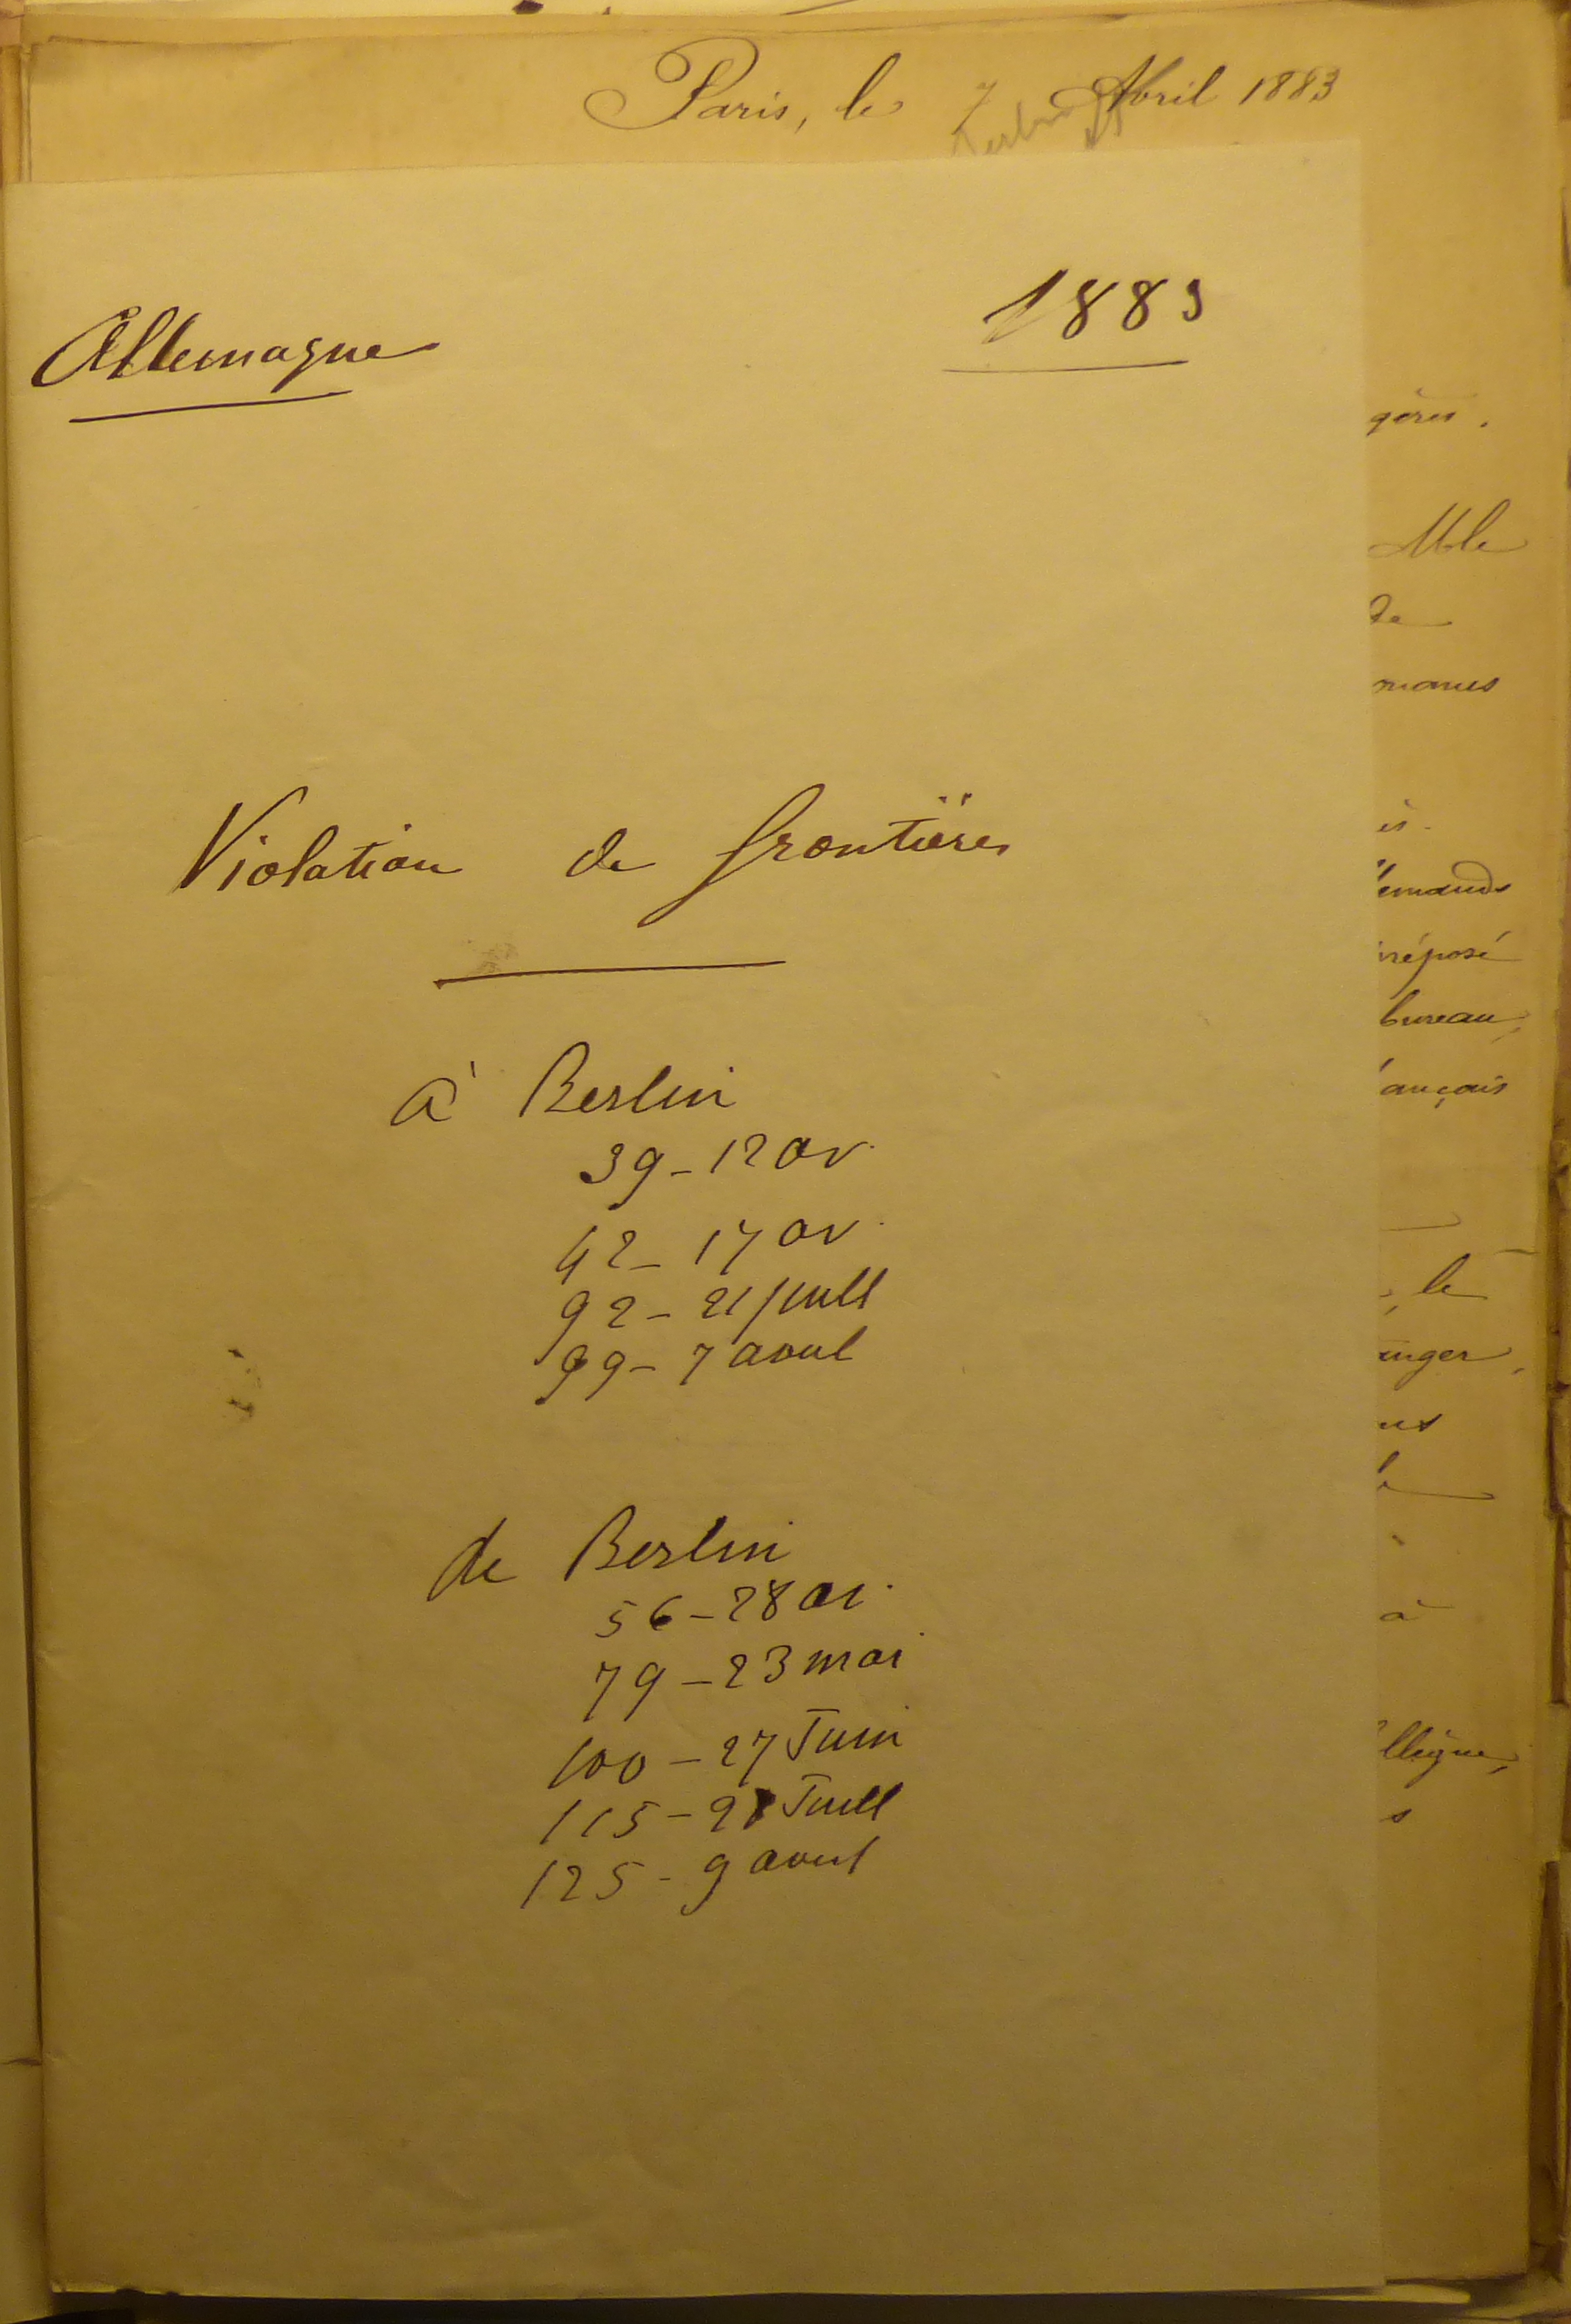 Paris, le 7 Avril 1883
Allemagne
1883
Violation de frontières
à Berlin
39 - 12 av.
42 - 17 av.
92 - 21 juill
99 - 7 aout
de Berlin
56 - 28 av.
79 - 23 mai
100 - 27 Juin
115 - Juill
125 - 9 aout
gères.
Mle
de
manes
és.
emands
réposé
bureau,
ançais
, le
anger,
à
s